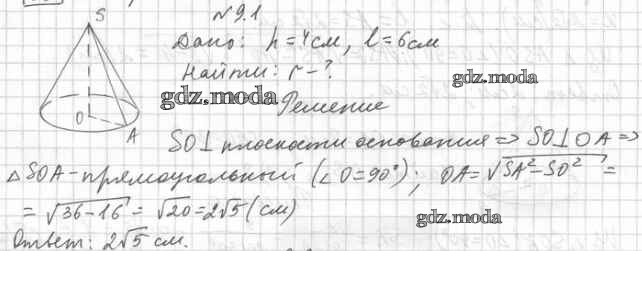 № 9.1
S
Дано: h = 4 см, l = 6 см
Найти: r - ?
gdz.moda
gdz.moda
Решение
O
A
SO⊥ плоскости основания => SO⊥OA =>
△SOA - прямоугольный (∠O=90°); OA=√SA²-SO² =
= √36-16 = √20 = 2√5 (см)
gdz.moda
Ответ: 2√5 см.